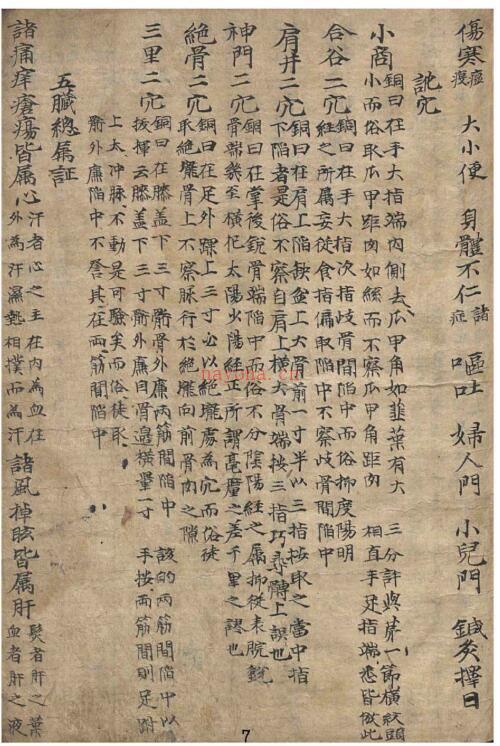 傷寒 瘟疫 大小便 身體不仁 諸症 嘔吐 婦人門 小兒門 鍼灸擇日
訛穴
小商 銅曰在手大指端內側去爪甲角如韭葉有大 三分許與第一節橫紋頭
小而俗取爪甲距肉如絲而不察爪甲角距肉 相直手足指端悉皆倣此
合谷二穴 銅曰在手大指次指歧骨間陷中而俗抑度陽明
經之所屬妄從食指偏取陷中不察歧骨間陷中
肩井二穴 銅曰在肩上陷缺盆上大骨前一寸半以三指按取之當中指
下陷者是俗不察自肩上橫大骨端按三指巧尋髆上誤也
神門二穴 銅曰在掌後銳骨端陷中而俗不分陰陽經之屬抑從表腕銳
骨端幾至橫犯太陽少陽經正所謂毫釐之差千里之謬也
絕骨二穴 銅曰在足外踝上三寸必以絕壠處為穴而俗徒
取絕壠骨上不察脉行於絕壠向前骨肉之隙
三里二穴 銅曰在膝盖下三寸䯒骨外廉兩筋間陷中 該的兩筋間陷中以
拔揮云膝盖下三寸䯒外廉自骨邉橫量一寸 手按兩筋間則足跗
上太冲脉不動是可驗矣而俗徒取
䯒外廉陷中不詧其在兩筋間陷中
五臟總屬証
諸痛痒瘡瘍皆属心 汗者心之主在內為血在 諸風掉眩皆属肝 髮者肝之葉
外為汗濕熱相撲而為汗 血者肝之液
nayona.cn
7